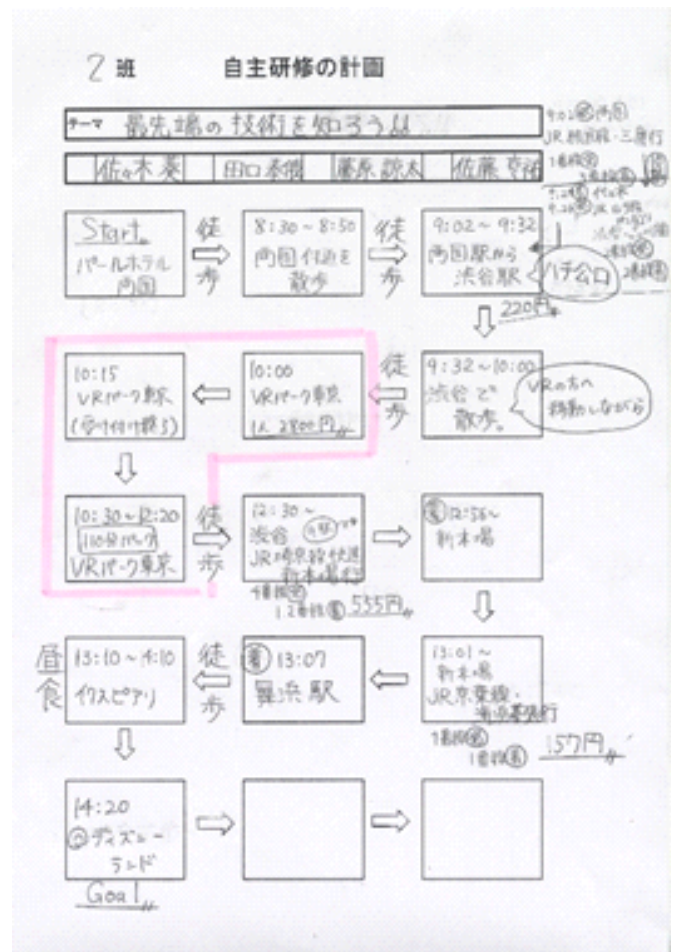 2 班
自主研修の計画
テーマ 最先端の技術を知ろう!!
佐々木 葵 田口 藤原 諒太 佐藤
Start
パールホテル
両国
徒歩
8:30~8:50
両国付近を
散歩
徒歩
9:02~9:32
両国駅から
渋谷駅
ハチ公口
220円
9:32~10:00
渋谷で
散歩。
VRの方へ
移動しながら
徒歩
10:00
VRパーク東京
1人 2800円
10:15
VRパーク東京
(受け付け終了)
10:30~12:20
110分パック
VRパーク東京
徒歩
12:30~
渋谷
JR埼京線快速
新木場行
555円
着 12:56~
新木場
13:01~
新木場
JR京葉線・
海浜幕張行
157円
着 13:07
舞浜駅
徒歩
昼食
13:10~14:10
イクスピアリ
14:20
ディズニー
ランド
Goal